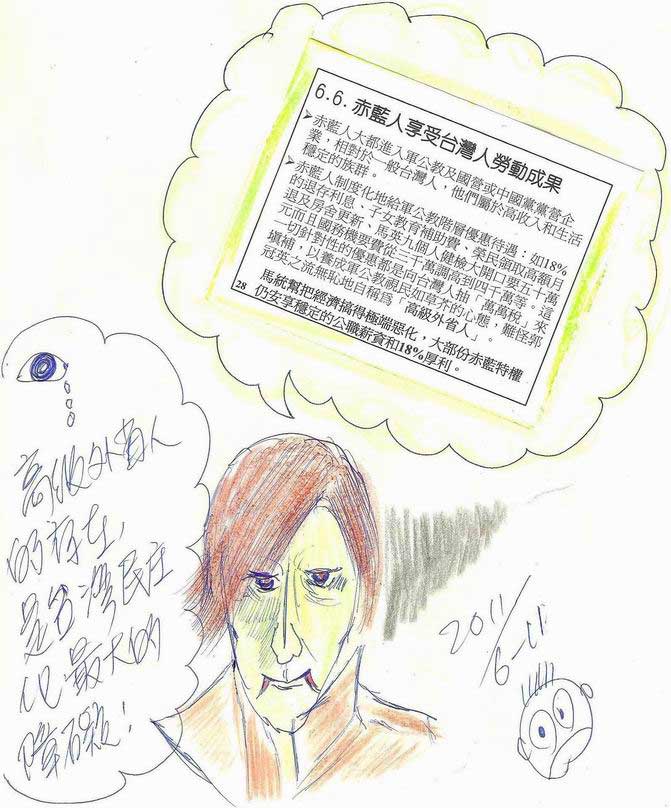 6.6. 赤藍人享受台灣人勞動成果
➢赤藍人大都進入軍公教及國營或中國黨黨營企
業，相對於一般台灣人，他們屬於高收入和生活
穩定的族群。
➢赤藍人制度化地給軍公教階層優惠待遇：如18%
的退存利息、子女教育補助費、榮民領取高額月
退及房舍更新、馬英九個人健檢大開口要五千萬
元而且國務機要費從三千萬調高到四千萬等。這
一切針對性的優惠都是向台灣人抽「萬萬稅」來
填補，以養成軍公教視民如草芥的心態，難怪郭
冠英之流無恥地自稱為「高級外省人」。
馬統幫把經濟搞得極端惡化，大部份赤藍特權
仍安享穩定的公職薪資和18%厚利。
28
高級外省人
的存在，
是台灣民主
化最大的
2011/
6-11